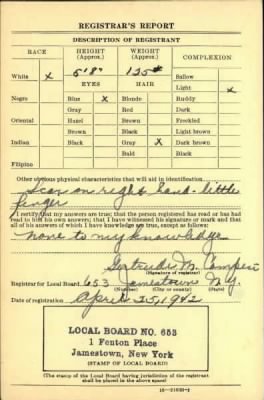 REGISTRAR'S REPORT
DESCRIPTION OF REGISTRANT
RACE HEIGHT (Approx.) WEIGHT (Approx.) COMPLEXION
White X 5'8" 135# Sallow
EYES HAIR Light X
Negro Blue X Blonde Ruddy
Gray Red Dark
Oriental Hazel Brown Freckled
Brown Black Light brown
Indian Black Gray X Dark brown
Bald Black
Filipino
Other obvious physical characteristics that will aid in identification
Scar on right hand - little
finger
I certify that my answers are true; that the person registered has read or has had
read to him his own answers; that I have witnessed his signature or mark and that
all of his answers of which I have knowledge are true, except as follows:
none to my knowledge
Gertrude M.
(Signature of registrar)
Registrar for Local Board 653 Jamestown N.Y.
(Number) (City or county) (State)
Date of registration April 25, 1942
LOCAL BOARD NO. 653
1 Fenton Place
Jamestown, New York
(STAMP OF LOCAL BOARD)
(The stamp of the Local Board having jurisdiction of the registrant
shall be placed in the above space)